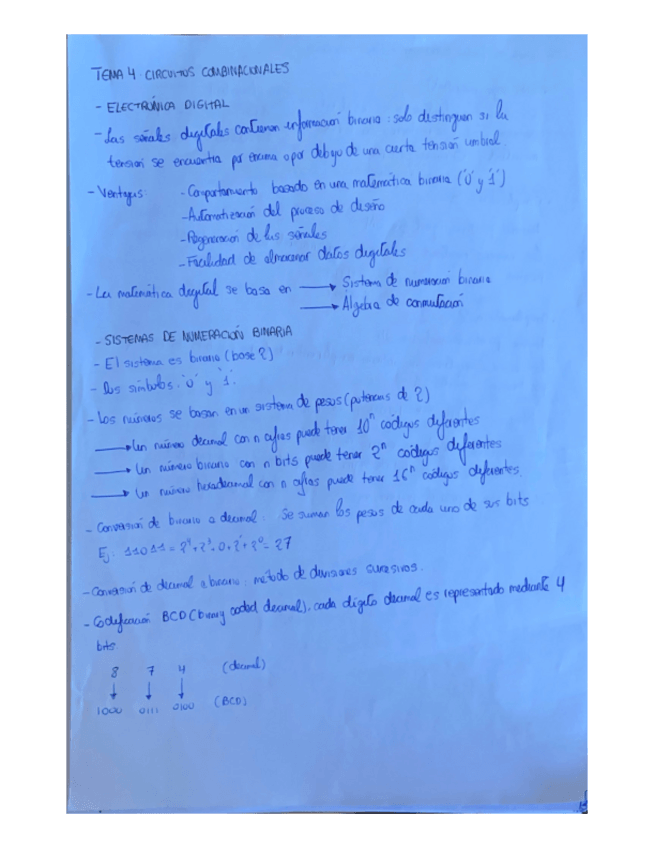 TEMA 4 CIRCUITOS COMBINACIONALES
- ELECTRÓNICA DIGITAL
- Las señales digitales contienen información binaria: solo distinguen si la
tensión se encuentra por encima o por debajo de una cierta tensión umbral
- Ventajas: - Comportamiento basado en una matemática binaria ('0' y '1')
- Automatización del proceso de diseño
- Regeneración de las señales
- Facilidad de almacenar datos digitales
- La matemática digital se basa en → Sistema de numeración binaria
→ Álgebra de conmutación
- SISTEMAS DE NUMERACIÓN BINARIA
- El sistema es binario (base 2)
- Dos símbolos: '0' y '1'.
- Los números se basan en un sistema de pesos (potencias de 2)
→ Un número decimal con n cifras puede tener 10ⁿ códigos diferentes
→ Un número binario con n bits puede tener 2ⁿ códigos diferentes
→ Un número hexadecimal con n cifras puede tener 16ⁿ códigos diferentes.
- Conversión de binario a decimal: Se suman los pesos de cada uno de sus bits
Ej: 11011 = 2⁴+2³+0+2¹+2⁰= 27
- Conversión de decimal a binario: método de divisiones sucesivas.
- Codificación BCD (binary coded decimal), cada dígito decimal es representado mediante 4
bits.
8 7 4 (decimal)
↓ ↓ ↓
1000 0111 0100 (BCD)